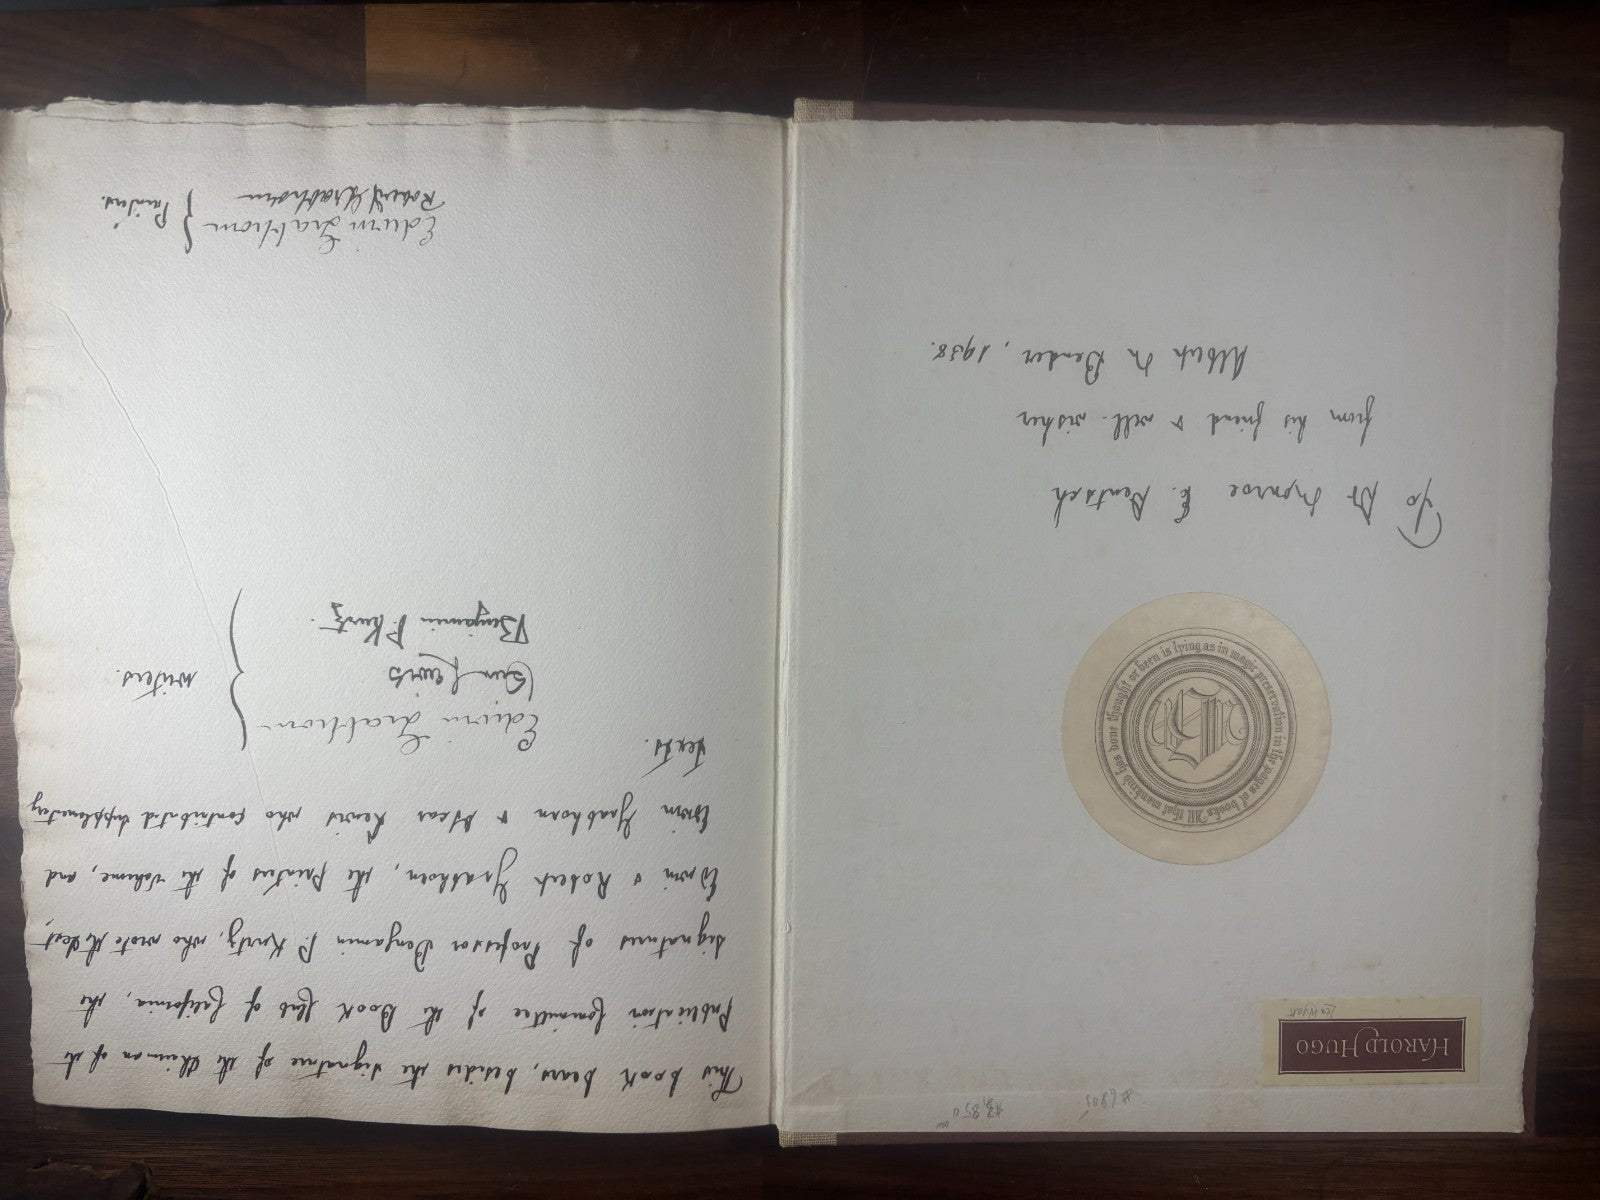 HAROLD HUGO
All that mankind has done thought or been is lying as in magic preservation in the pages of books.
To Dr Monroe E. Deutsch
from his friend & well-wisher
Albert M Bender, 1938.
This book bears, besides the signature of the Chairman of the
Publication Committee of the Book Club of California, the
signatures of Professor Benjamin P. Kurtz, who wrote the text,
Edwin & Robert Grabhorn, the Printers of the volume, and
Edwin Grabhorn & Oscar Lewis who contributed supplementary
texts.
Edwin Grabhorn
Oscar Lewis
Benjamin P. Kurtz.
writers.
Edwin Grabhorn
Robert Grabhorn
Printers.